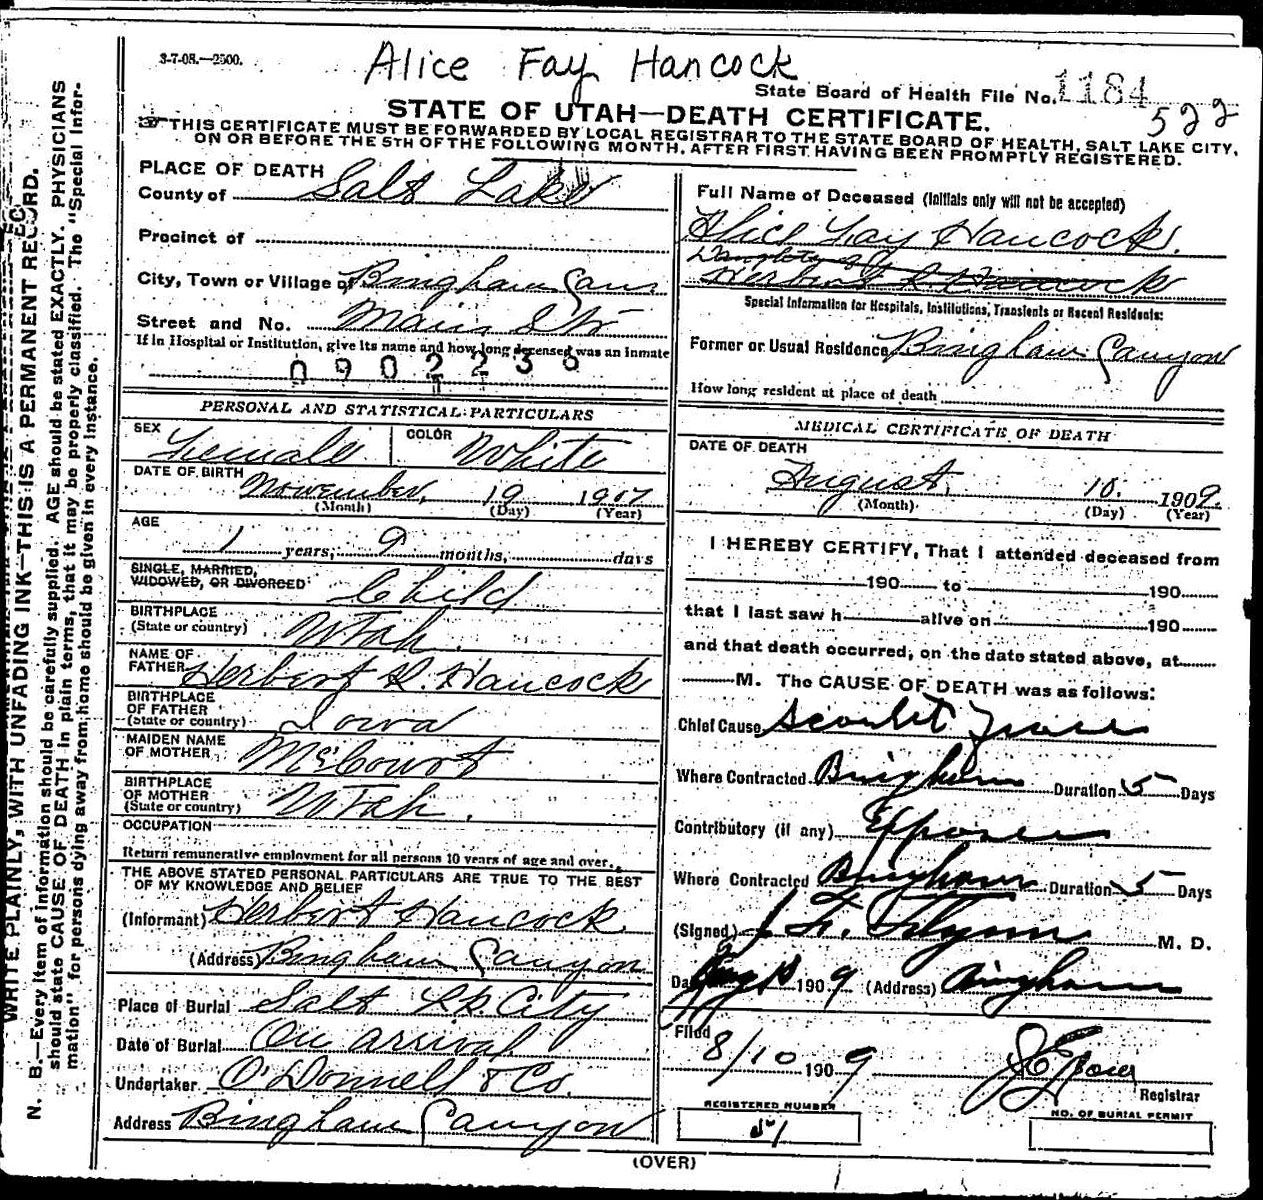 3-7-08.—2500.
Alice Fay Hancock
State Board of Health File No. 1184
522
STATE OF UTAH—DEATH CERTIFICATE.
THIS CERTIFICATE MUST BE FORWARDED BY LOCAL REGISTRAR TO THE STATE BOARD OF HEALTH, SALT LAKE CITY,
ON OR BEFORE THE 5TH OF THE FOLLOWING MONTH, AFTER FIRST HAVING BEEN PROMPTLY REGISTERED.
PLACE OF DEATH
County of Salt Lake
Precinct of
City, Town or Village of Bingham Can
Street and No. Main Str
If in Hospital or Institution, give its name and how long deceased was an inmate
PERSONAL AND STATISTICAL PARTICULARS
SEX Female COLOR White
DATE OF BIRTH November, 19 1907
(Month) (Day) (Year)
AGE
1 years, 9 months, days
SINGLE, MARRIED,
WIDOWED, OR DIVORCED Child
BIRTHPLACE
(State or country) Utah.
NAME OF
FATHER Herbert R. Hancock
BIRTHPLACE
OF FATHER
(State or country) Iowa
MAIDEN NAME
OF MOTHER McCourt
BIRTHPLACE
OF MOTHER
(State or country) Utah.
OCCUPATION
Return remunerative employment for all persons 10 years of age and over.
THE ABOVE STATED PERSONAL PARTICULARS ARE TRUE TO THE BEST
OF MY KNOWLEDGE AND BELIEF
(Informant) Herbert Hancock
(Address) Bingham Canyon
Place of Burial Salt Lk. City
Date of Burial On arrival
Undertaker O'Donnell & Co.
Address Bingham Canyon
Full Name of Deceased (Initials only will not be accepted)
Alice Fay Hancock.
Daughter of
Herbert R Hancock
Special Information for Hospitals, Institutions, Transients or Recent Residents:
Former or Usual Residence Bingham Canyon
How long resident at place of death
MEDICAL CERTIFICATE OF DEATH
DATE OF DEATH
August, 10. 1909.
(Month) (Day) (Year)
I HEREBY CERTIFY, That I attended deceased from
190 to 190
that I last saw h alive on 190
and that death occurred, on the date stated above, at
M. The CAUSE OF DEATH was as follows:
Chief Cause Scarlet Fever
Where Contracted Bingham Duration 5 Days
Contributory (if any)
Where Contracted Bingham Duration 5 Days
(Signed) J F. Flynn M. D.
Date Aug 10 1909 (Address) Bingham
Filed
8/10 1909
Registrar
REGISTERED NUMBER
NO. OF BURIAL PERMIT
(OVER)
WRITE PLAINLY, WITH UNFADING INK—THIS IS A PERMANENT RECORD.
N. B.—Every item of information should be carefully supplied. AGE should be stated EXACTLY. PHYSICIANS
should state CAUSE OF DEATH in plain terms, that it may be properly classified. The "Special Infor-
mation" for persons dying away from home should be given in every instance.